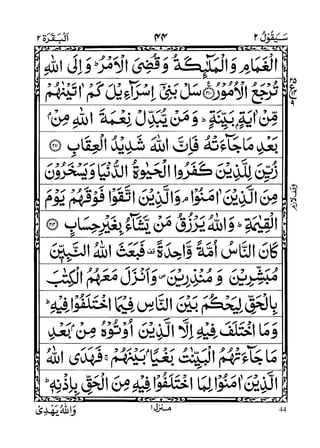 سَيَقُوۡلُ ٢
٤٤
اَلۡبَقَرَة ٢
الۡغَمَامِ وَالۡمَلٰٓئِكَةُ وَقُضِىَ الۡاَمۡرُؕ وَاِلَى اللّٰهِ
تُرۡجَعُ الۡاُمُوۡرُ ﴿٢١٠﴾ سَلۡ بَنِىۡٓ اِسۡرَآءِيۡلَ كَمۡ اٰتَيۡنٰهُمۡ
مِّنۡ اٰيَةٍۢ بَيِّنَةٍؕ وَمَنۡ يُّبَدِّلۡ نِعۡمَةَ اللّٰهِ مِنۡۢ
بَعۡدِ مَا جَآءَتۡهُ فَاِنَّ اللّٰهَ شَدِيۡدُ الۡعِقَابِ ﴿٢١١﴾
زُيِّنَ لِلَّذِيۡنَ كَفَرُوا الۡحَيٰوةُ الدُّنۡيَا وَيَسۡخَرُوۡنَ
مِنَ الَّذِيۡنَ اٰمَنُوۡاۘ وَالَّذِيۡنَ اتَّقَوۡا فَوۡقَهُمۡ يَوۡمَ
الۡقِيٰمَةِؕ وَاللّٰهُ يَرۡزُقُ مَنۡ يَّشَآءُ بِغَيۡرِ حِسَابٍ ﴿٢١٢﴾
كَانَ النَّاسُ اُمَّةً وَّاحِدَةً فَبَعَثَ اللّٰهُ النَّبِيّٖنَ
مُبَشِّرِيۡنَ وَمُنۡذِرِيۡنَ وَاَنۡزَلَ مَعَهُمُ الۡكِتٰبَ
بِالۡحَقِّ لِيَحۡكُمَ بَيۡنَ النَّاسِ فِيۡمَا اخۡتَلَفُوۡا فِيۡهِؕ
وَمَا اخۡتَلَفَ فِيۡهِ اِلَّا الَّذِيۡنَ اُوۡتُوۡهُ مِنۡۢ بَعۡدِ
مَا جَآءَتۡهُمُ الۡبَيِّنٰتُ بَغۡيًۢا بَيۡنَهُمۡۚ فَهَدَى اللّٰهُ
الَّذِيۡنَ اٰمَنُوۡا لِمَا اخۡتَلَفُوۡا فِيۡهِ مِنَ الۡحَقِّ بِاِذۡنِهٖؕ
وقف لازم
44
منزل ١
وَاللّٰهُ يَهۡدِىۡ